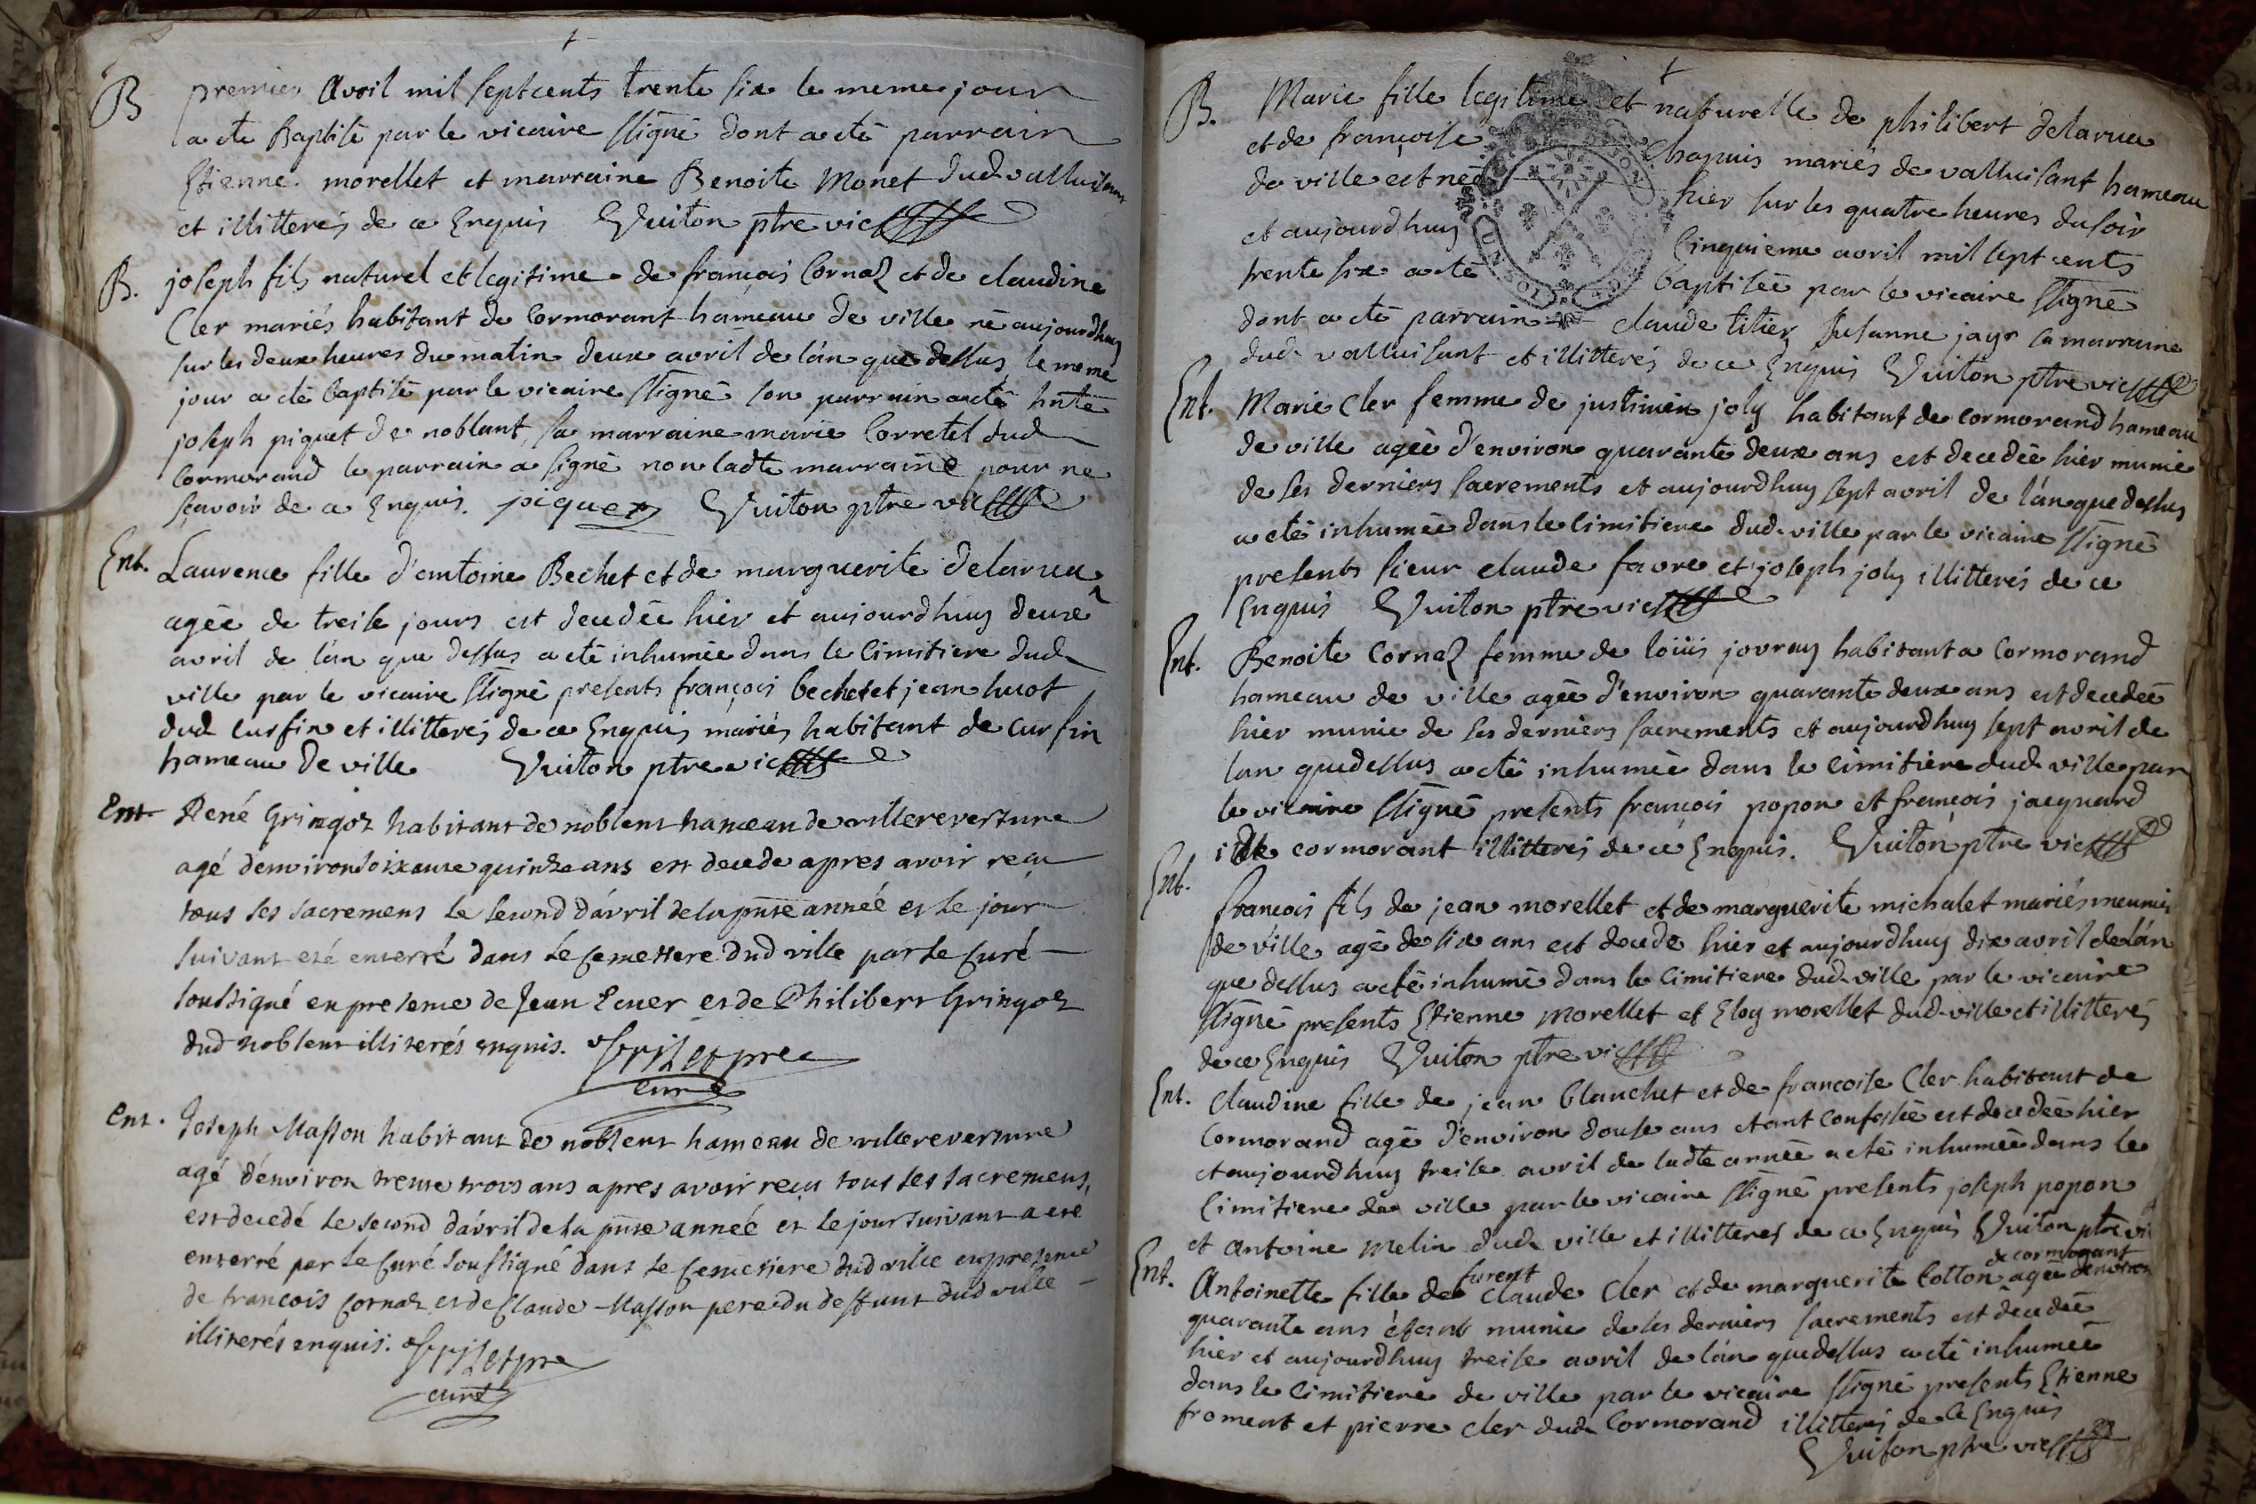 B premier Avril mil septcents trente six le meme jour
a été Baptisé par le vicaire ssigné dont a été parrain
Etienne morellet et marraine Benoite Monet dud valluisant
et illitterés de ce Enquis Vuiton ptre vic
B. joseph fils naturel et legitime de françois Cornaz et de claudine
Cler mariés habitant de Cormorant hameau de ville né aujourdhuy
sur les deux heures du matin deux avril de l'an que dessus le meme
jour a été baptisé par le vicaire ssigné son parrain a été
joseph piquet de noblant, sa marraine marie Corretel dud
Cormorand le parrain a signé non ladte marraine pour ne
sçavoir de ce Enquis. piquet Vuiton ptre vic
Ent. Laurence fille d'antoine Bechet et de marguerite Delarua
agée de treise jours est decedée hier et aujourdhuy deux
avril de l'an que dessus a été inhumée dans le Cimitiere dud
ville par le vicaire ssigné presents françois bechet et jean huot
dud Curfin et illitterés de ce Enquis mariés habitant de Curfin
hameau de ville Vuiton ptre vic
Ent René Gringoz habitant de noblent hameau de villereversure
agé d'environ soixante quinze ans est decede apres avoir reçu
tous ses sacremens le second d'avril de la pnte année et le jour
suivant eté enterré dans le cemettere dud ville par le curé
soussigné en presence de Jean Ecuer et de Philibert Gringoz
dud noblent illiterés enquis.
curé
Ent. Joseph Masson habitant de noblent hameau de villereversure
agé d'environ trente trois ans apres avoir reçu tous ses sacremens,
est decedé le second d'avril de la pnte année et le jour suivant a eté
enterré par le curé soussigné dans le cemettere dud ville en presence
de francois Cornaz et de Claude Masson pere du deffunt dud ville
illiterés enquis.
curé
B. Marie fille legitime et naturelle de philibert delarua
et de françoise Chapuis mariés de valluisant hameau
de ville est née hier sur les quatre heures du soir
et aujourdhuy Cinquieme avril mil sept cents
trente six a été baptisée par le vicaire ssigné
dont a été parrain claude titier susanne jayr sa marraine
dud valluisant et illitterés de ce Enquis Vuiton ptre vic
Ent. Marie Cler femme de justinien joly habitant de Cormorand hameau
de ville agée d'environ quarante deux ans est decedée hier munie
de ses derniers sacrements et aujourdhuy sept avril de l'an que dessus
a été inhumée dans le Cimitiere dud ville par le vicaire ssigné
presents sieur claude favre et joseph joly illitterés de ce
Enquis Vuiton ptre vic
Ent. Benoite Cornaz femme de loüis jovray habitant a Cormorand
hameau de ville agée d'environ quarante deux ans est decedée
hier munie de ses derniers sacrements et aujourdhuy sept avril de
l'an que dessus a été inhumée dans le Cimitiere dud ville par
le vicaire ssigné presents françois popon et françois jacquard
de cormorant illitterés de ce Enquis. Vuiton ptre vic
Ent. françois fils de jean morellet et de marguerite michalet mariés meunier
de ville agé de six ans est decedé hier et aujourdhuy dix avril de l'an
que dessus a été inhumé dans le Cimitiere dud ville par le vicaire
ssigné presents Etienne morellet et Eloy morellet dud ville et illitterés
de ce Enquis Vuiton ptre vic
Ent. Claudine fille de jean blanchet et de françoise Cler habitant de
Cormorand agé d'environ douse ans etant Confessée est decedée hier
et aujourdhuy treise avril de ladte année a été inhumée dans le
Cimitiere de ville par le vicaire ssigné presents joseph popon
et antoine Melin dud ville et illitterés de ce Enquis Vuiton ptre vic
de cormorant
Ent. Antoinette fille de furent Claude Cler et de marguerite Cotton agée denviron
quarante ans étant munie de ses derniers sacrements est décedée
hier et aujourdhuy treise avril de l'an que dessus a été inhumée
dans le Cimitiere de ville par le vicaire ssigné presents Etienne
froment et pierre Cler dud Cormorand illitterés de ce Enquis
Vuiton ptre vic